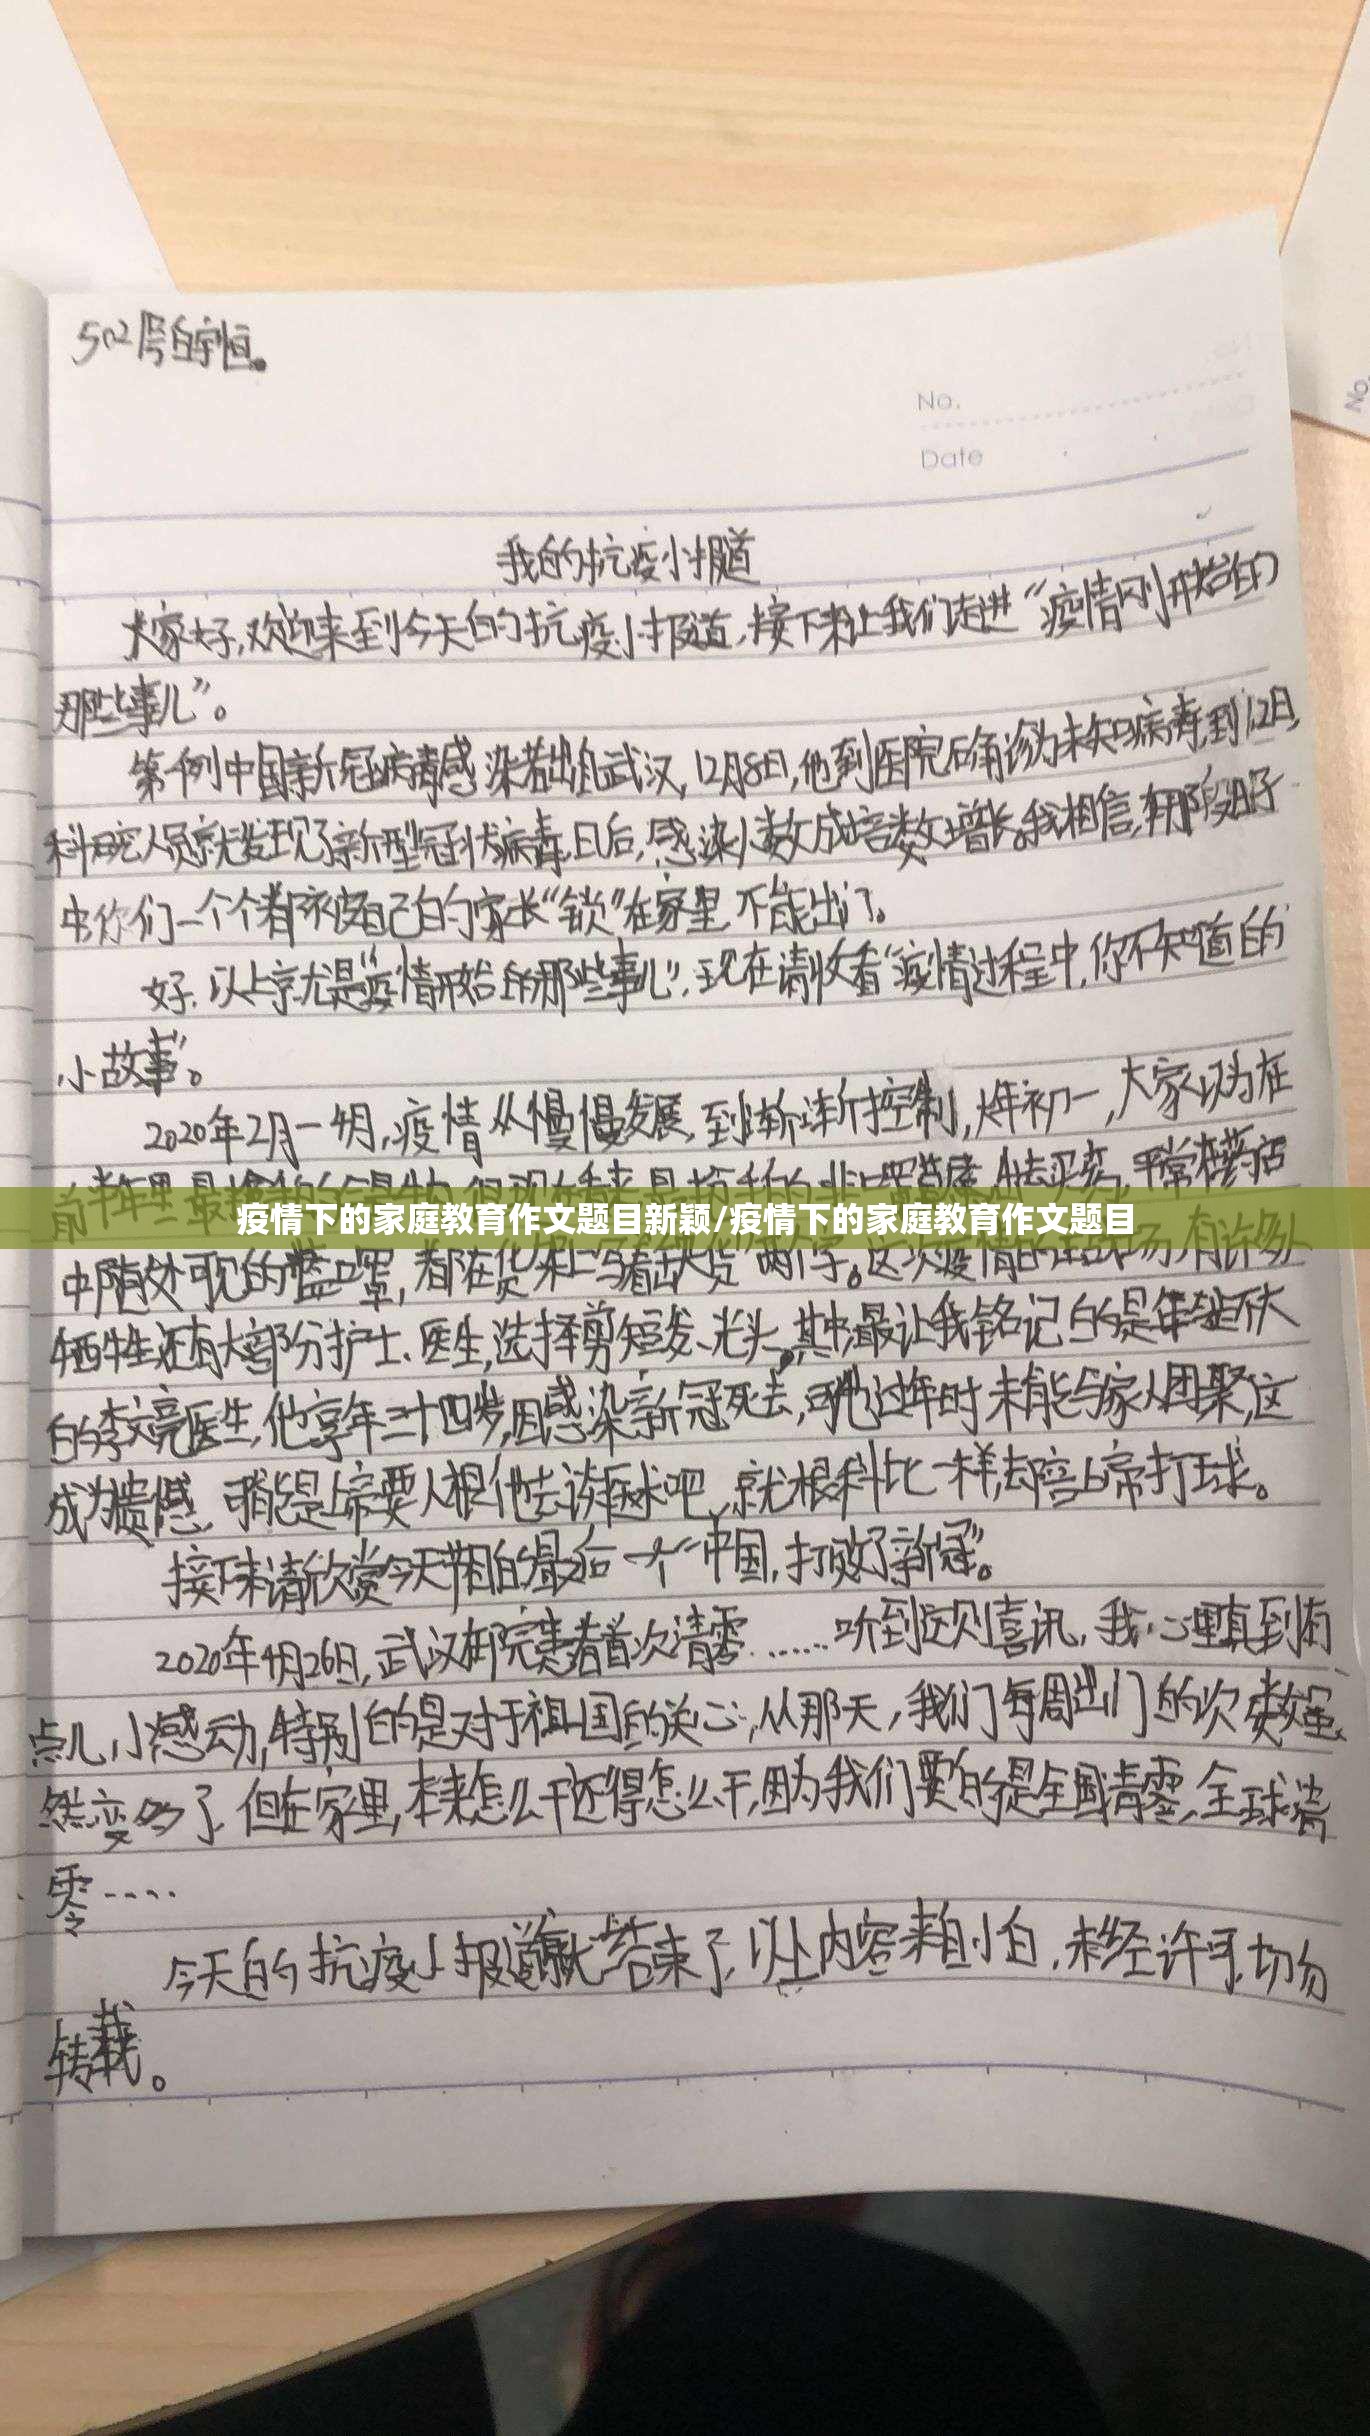 502号白宇恒。
No.
Date
我的抗疫小报道
大家好,欢迎来到今天的抗疫小报道,接下来让我们走进“疫情刚开始的
那些事儿”。
第一例中国新冠病毒感染者出自武汉,12月8日,他到医院确诊为未知病毒,到12日,
科研究人员就发现了新型冠状病毒,日后,感染人数成培数增长。我相信,在那段日子
中你们一个个都被自己的家长“锁”在家里,不能出门。
好,以上就是“疫情开始的那些事儿”,现在请收看“疫情过程中,你不知道的
小故事”。
2020年2月一4月,疫情从慢慢发展,到渐渐控制,大年初一,大家以为在
前半年里最
疫情下的家庭教育作文题目新颖/疫情下的家庭教育作文题目
中随处可见的蓝口罩,都在货架上写着“缺货”两个字。这次疫情的主战场,有许多人
牺牲还有大部分护士、医生,选择剪短发、光头,其中,最让我铭记的是年龄不大
的李文亮医生,他享年三十四岁,因感染新冠死去,可他过年时未能与家人团聚,这
成为遗憾,可能是上帝要人根他去谈医术吧,就根科比一样,去陪上帝打球。
接下来请欣赏今天节目的最后一个“中国,打败了新冠”。
2020年4月26日,武汉在院患者首次清零……听到这则喜讯,我心里真到有
点儿小感动,特别的是对于祖国的关心,从那天,我们每周出门的次数虽
然变多了,但在家里,本来怎么干还得怎么干,因为我们要的是全国清零,全球清
零····
今天的抗疫小报道就结束了,以上内容来自小白,未经许可,切勿
转载。